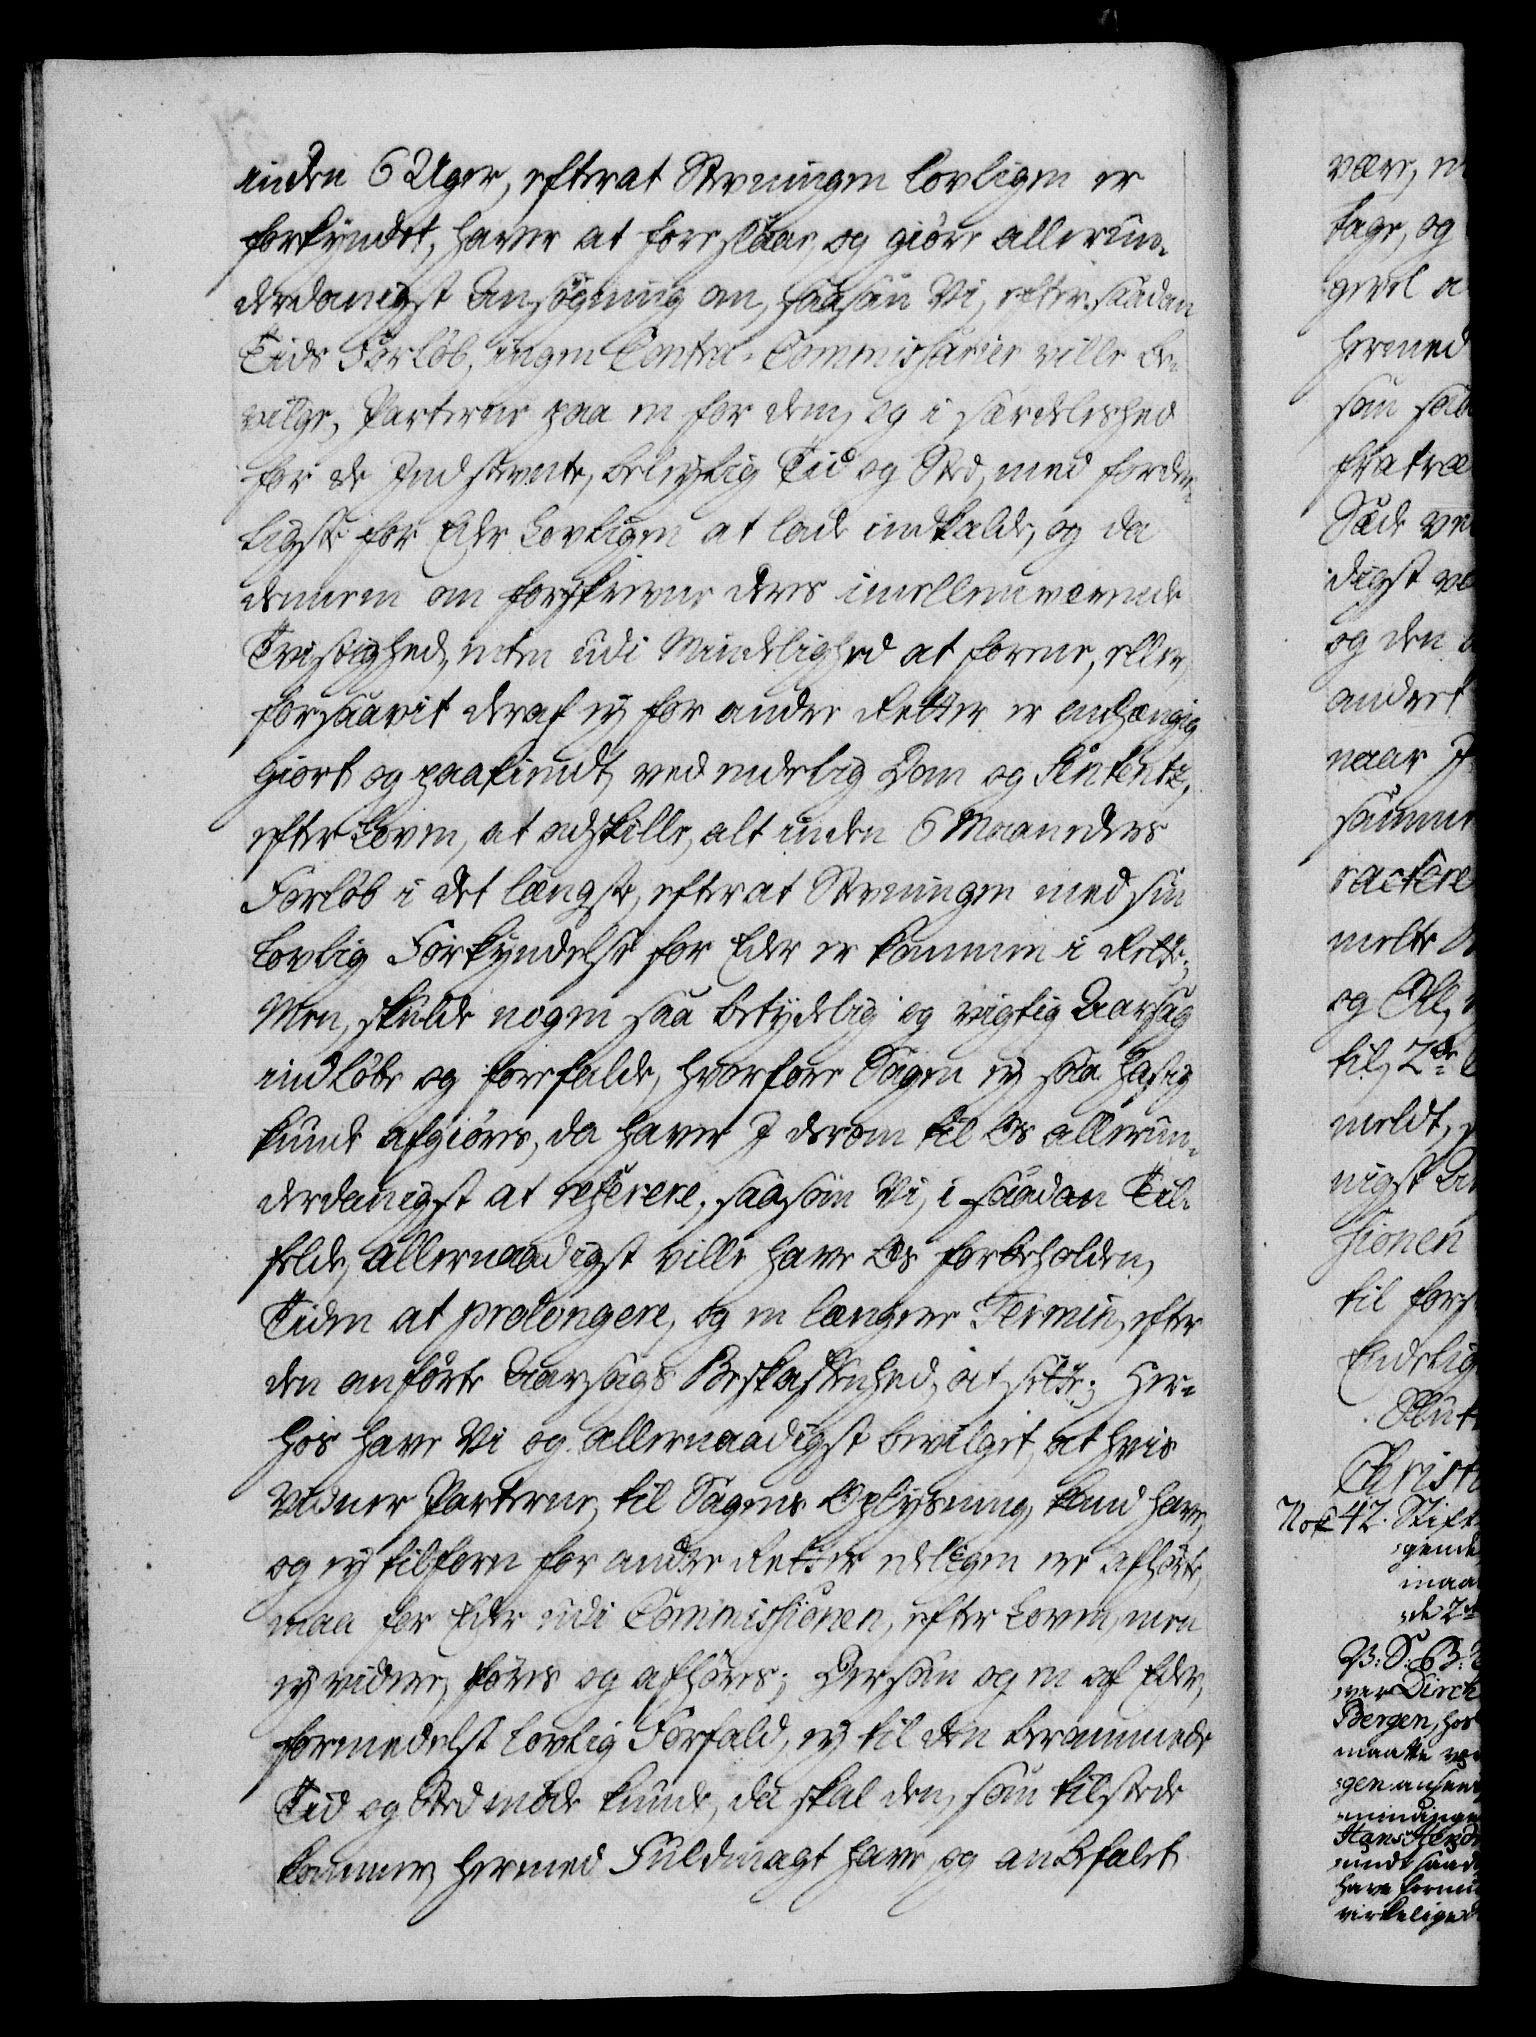 inden 6 Uger, efterat Stevningen lovligen er
forkyndet, haver at foreslaae, og giøre allerun-
derdanigst Ansøgning om, saasom Vi, efter saadan
Tids Forløb, ingen Contra-Commissarier ville be-
vilge, Parterne paa en for dem, og i særdeleshed
for de Indstevnte, beleylig Tid og Sted, med forder-
ligste for Eder lovligen at lade indkalde, og da
dennem om forskrevne deres imellemværende
Tvistighed, enten udi Mindelighed at foreene, eller
forsaavit deraf ej for andre Retter er anhængig
giort og paakiendt, ved endelig Dom og Sententz,
efter Loven, at adskille, alt inden 6 Maaneders
Forløb i det længste, efterat Stevningen med sin
lovlig Forkyndelse for Eder er kommen i Rette;
Men, skulde nogen saa betydelig og vigtig Aarsag
indløbe og forefalde, hvorfore Sagen ej saa hastig
kunde afgiøres, da haver I derom til Os allerun-
derdanigst at referere, saasom Vi, i saadan Til-
felde, allernaadigst ville have Os forbeholden,
Tiden at prolongere, og en længere Termin, efter
den anførte Aarsags Beskaffenhed, at sette; Her-
hos have Vi og allernaadigst bevilget, at hvis
Vidner Parterne, til Sagens Oplysning, kand have,
og ej tilforn for andre Retter edligen ere afhørte,
maa for Eder udi Commissionen, efter Loven, men
ej videre, føres og afhøres; Dersom og en af Eder,
formedelst lovlig Forfald, ej til den berammede
Tid og Sted møde kunde, da skal den, som tilstede
kommer, hermed Fuldmagt have, og anbefalet
være,
tage, og
gevel a
hermed
som
Sæde
digst
og den
andret
naar
samme
ractere
melte
og
til, 2de
meldt,
nigst
sionen
til
Endelig
Christi
No 42. Stift
gende
maa
de 2de
Bergen, hos
maatte
gen
Hans
have
virkelige